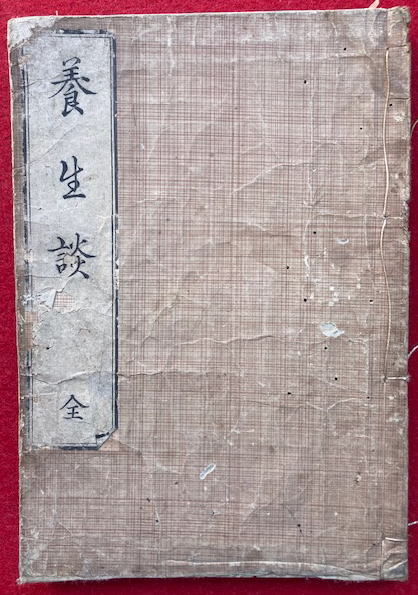 養生談 全